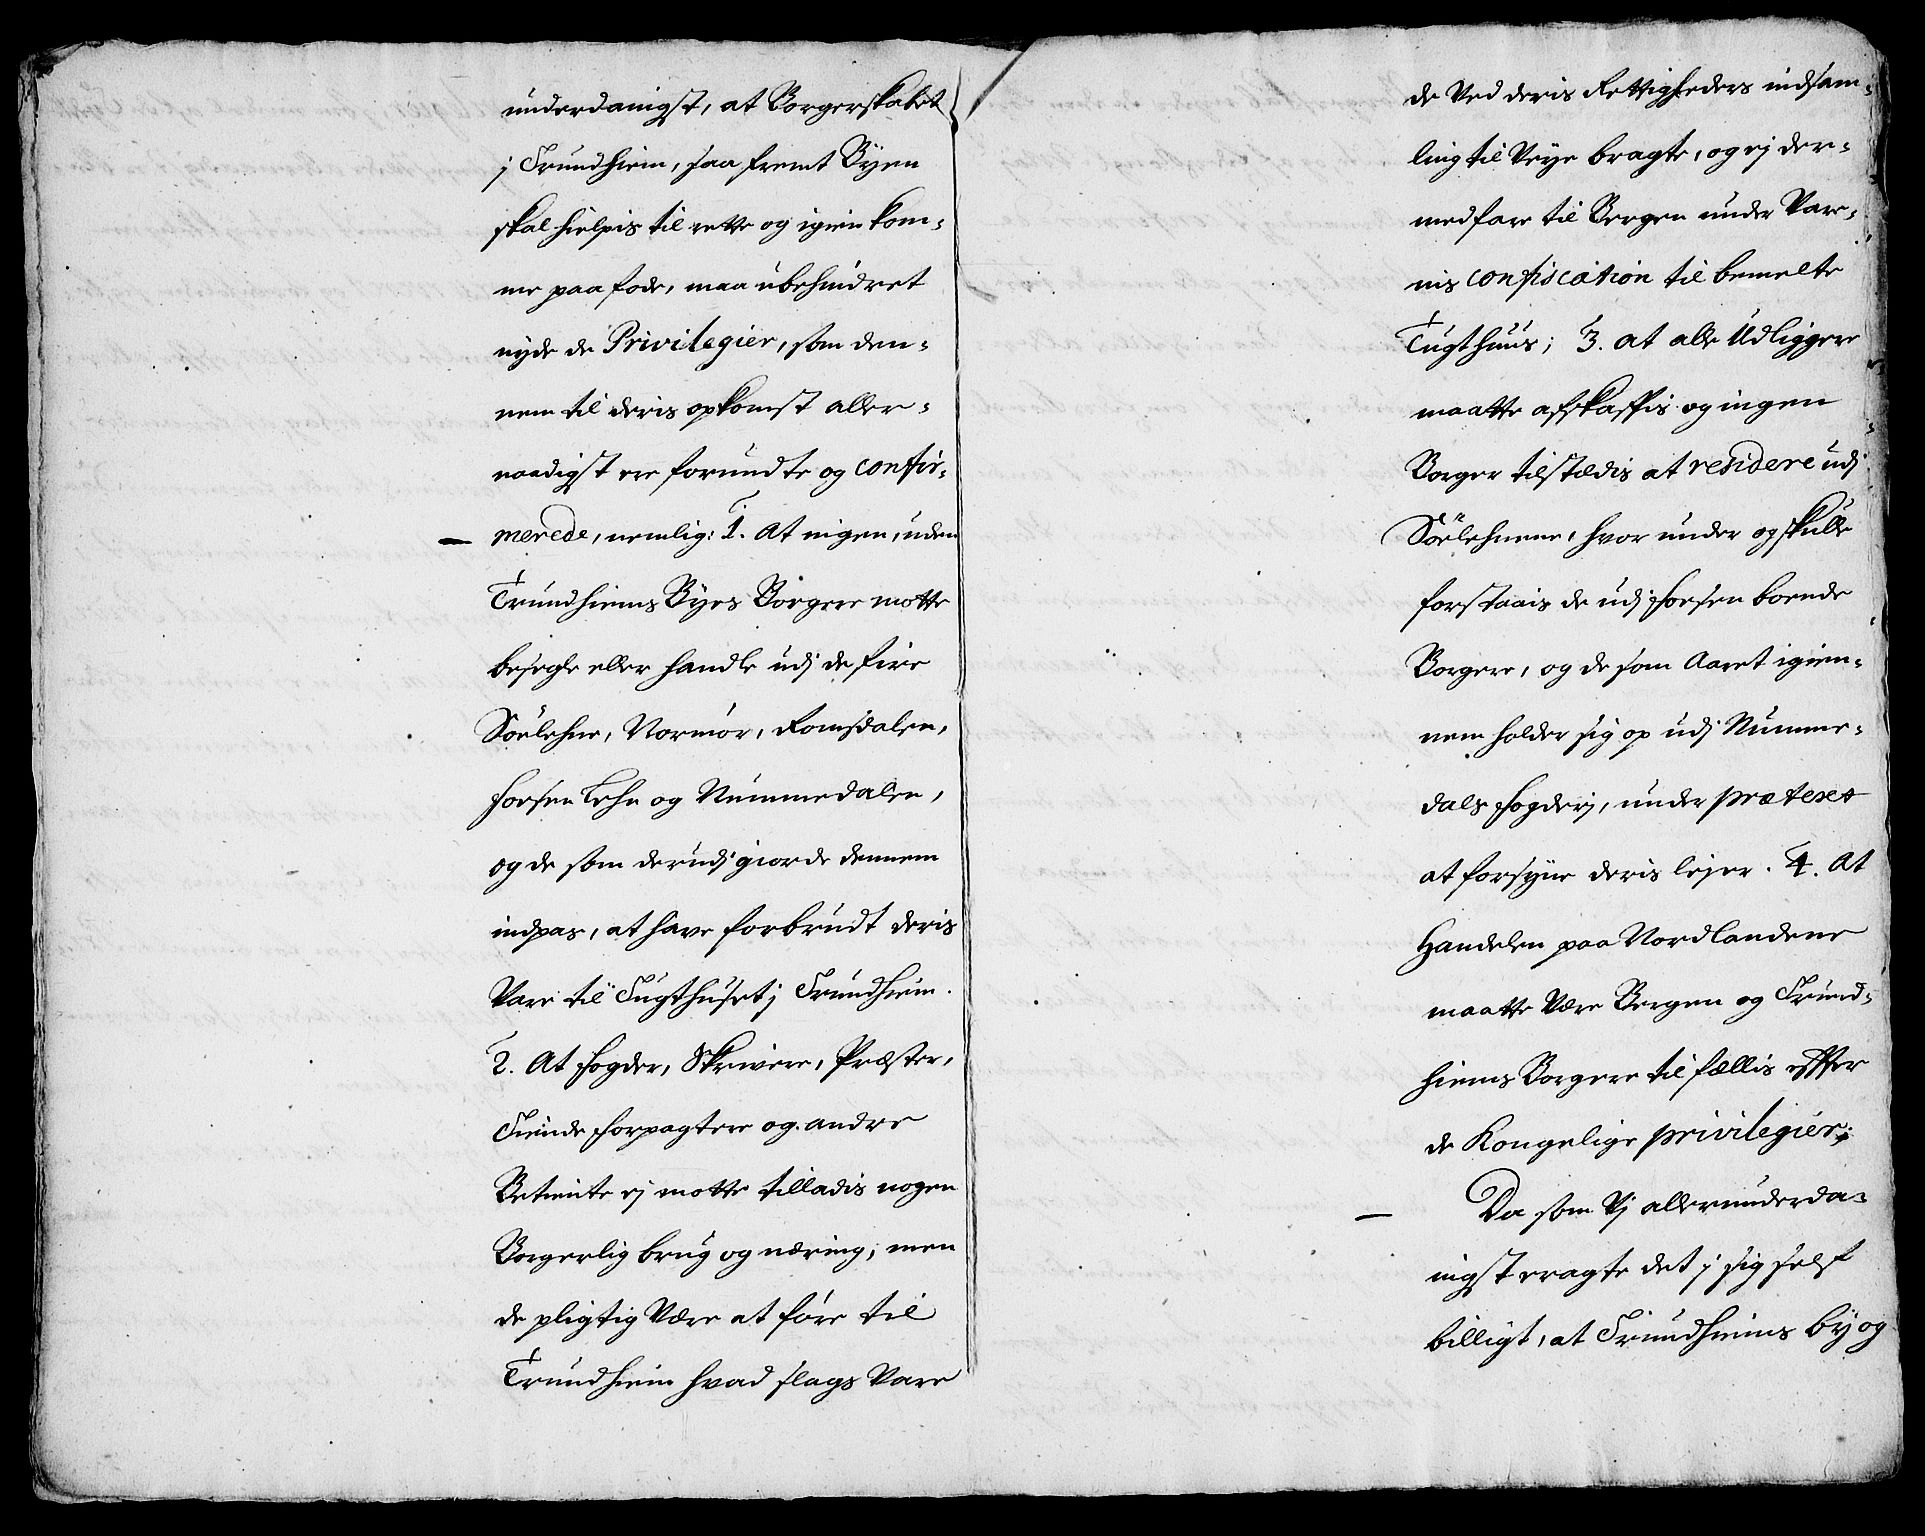 underdanigst, at Borgerskabet
j Trundhiem, saa fremt Byen
skal hielpis til rette og igien kom-
me paa fode, maa ubehindret
nyde de Privilegier, som den-
nem til deris opkomst aller-
naadigst ere forundte og confir-
merede, nemlig: 1. At ingen, uden
Trundhiems Byes Borgere motte
besegle eller handle udj de fire
Söelehne, Normör, Romsdalen,
Foesen Lehn og Nummedalen,
og de som derudj giorde dennem
indpas, at have forbrudt deris
Vare til Tugthuset j Trundhiem.
2. At Fogder, Skrivere, Præster,
Tiende Forpagtere og andre
Betiente ej motte tilladis nogen
Borgerlig brug og næring; men
de pligtig Være at före til
Trundhiem hvad slags Vare
de Ved deris Rettigheders indsam-
ling til Veye bragte, og ej der-
med fare til Bergen under Vare-
nis confiscation til bemelte
Tugthuus; 3. at alle Udliggere
maatte afskaffis og ingen
Borger tilstædis at residere udj
Söelehnene, hvor under og skulle
forstaais de udj Foesen boende
Borgere, og de som Aaret igien-
nem holder sig op udj Numme-
dals Fogderj, under prætext
at forsyne deris lejer. 4. At
Handelen paa Nordlandene
maatte Være Bergen og Trund-
hiems Borgere til fællis effter
de Kongelige privilegier;
Da som Vj allerunderda-
nigst eragte det j sig self
billigt, at Trundhiems by og